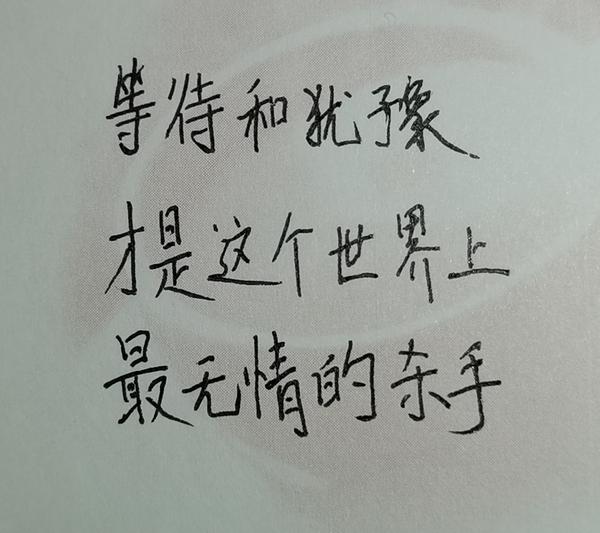 等待和犹豫
才是这个世界上
最无情的杀手